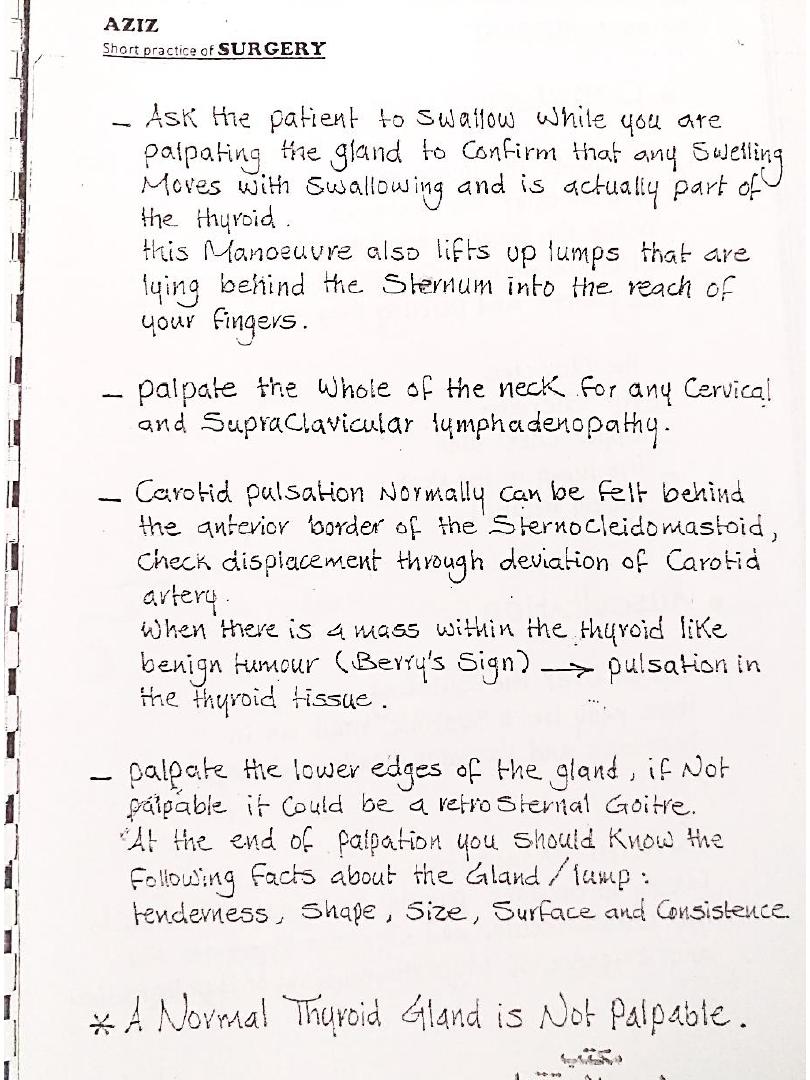 AZIZ
Short practice of SURGERY
– Ask the patient to swallow while you are
palpating the gland to confirm that any swelling
Moves with swallowing and is actually part of
the thyroid.
this Manoeuvre also lifts up lumps that are
lying behind the Sternum into the reach of
your fingers.
– palpate the whole of the neck for any Cervical
and SupraClavicular lymphadenopathy.
– Carotid pulsation Normally can be felt behind
the anterior border of the Sternocleidomastoid,
Check displacement through deviation of Carotid
artery.
When there is a mass within the thyroid like
benign tumour (Berry's Sign) → pulsation in
the thyroid tissue.
– palpate the lower edges of the gland, if Not
palpable it Could be a retrosternal Goitre.
At the end of palpation you should Know the
Following facts about the Gland/lump:
tenderness, Shape, Size, Surface and Consistence.
* A Normal Thyroid Gland is Not Palpable.
مكتب